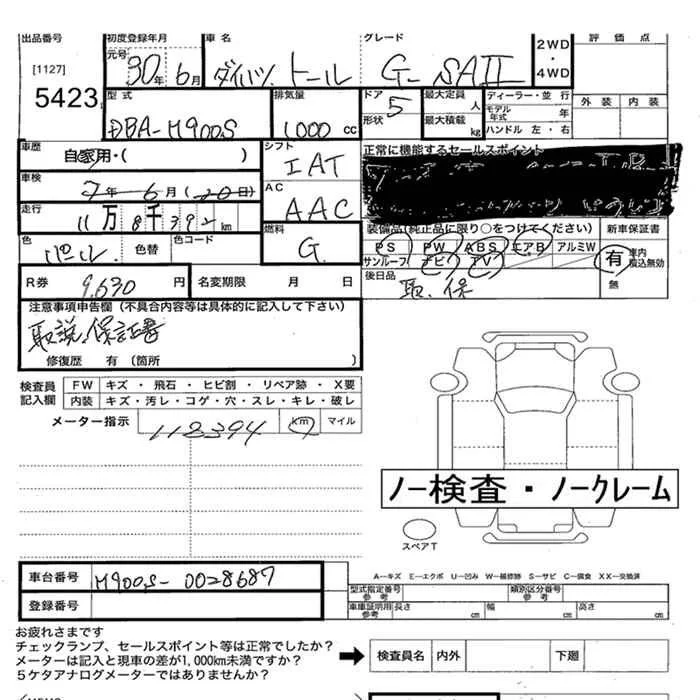 出品番号 初度登録年月 車名 グレード 2WD・4WD 評価点
[1127] 元号 30年 6月 ダイハツ トール G SAII
5423 外装 内装
型式 排気量 ドア 5 形状 最大定員 人 最大積載 kg ディーラー・並行 モデル年式 年 ハンドル 左・右
DBA-M900S 1000 cc
車歴 自家用・( ) シフト IAT 正常に機能するセールスポイント
車検 7年 6月 (20日)
走行 11万8千392km AC AAC 装備品(純正品に限り○をつけてください) 新車保証書
色 パール 色替 色コード 燃料 G PS PW ABS エアB アルミW 有 車内積込無効
サンルーフ ナビ TV 無
R券 9,630円 名変期限 月 日 後日品 取、保
注意事項申告欄(不具合内容等は具体的に記入して下さい)
取説、保証書
修復歴 有(箇所 )
検査員記入欄 FW キズ・飛石・ヒビ割・リペア跡・X要
内装 キズ・汚レ・コゲ・穴・スレ・キレ・破レ
メーター指示 118394 km マイル
ノー検査・ノークレーム
スペアT
車台番号 M900S-0028687 A―キズ E―エクボ U―凹み W―補修跡 S―サビ C―腐食 XX―交換済
型式指定番号 参考 類別区分番号 参考
登録番号 車庫証明用 参考 長さ cm 幅 cm 高さ cm
お疲れさまです
チェックランプ、セールスポイント等は正常でしたか?
メーターは記入と現車の差が1,000km未満ですか? 検査員名 内外 下廻
5ケタアナログメーターではありませんか?